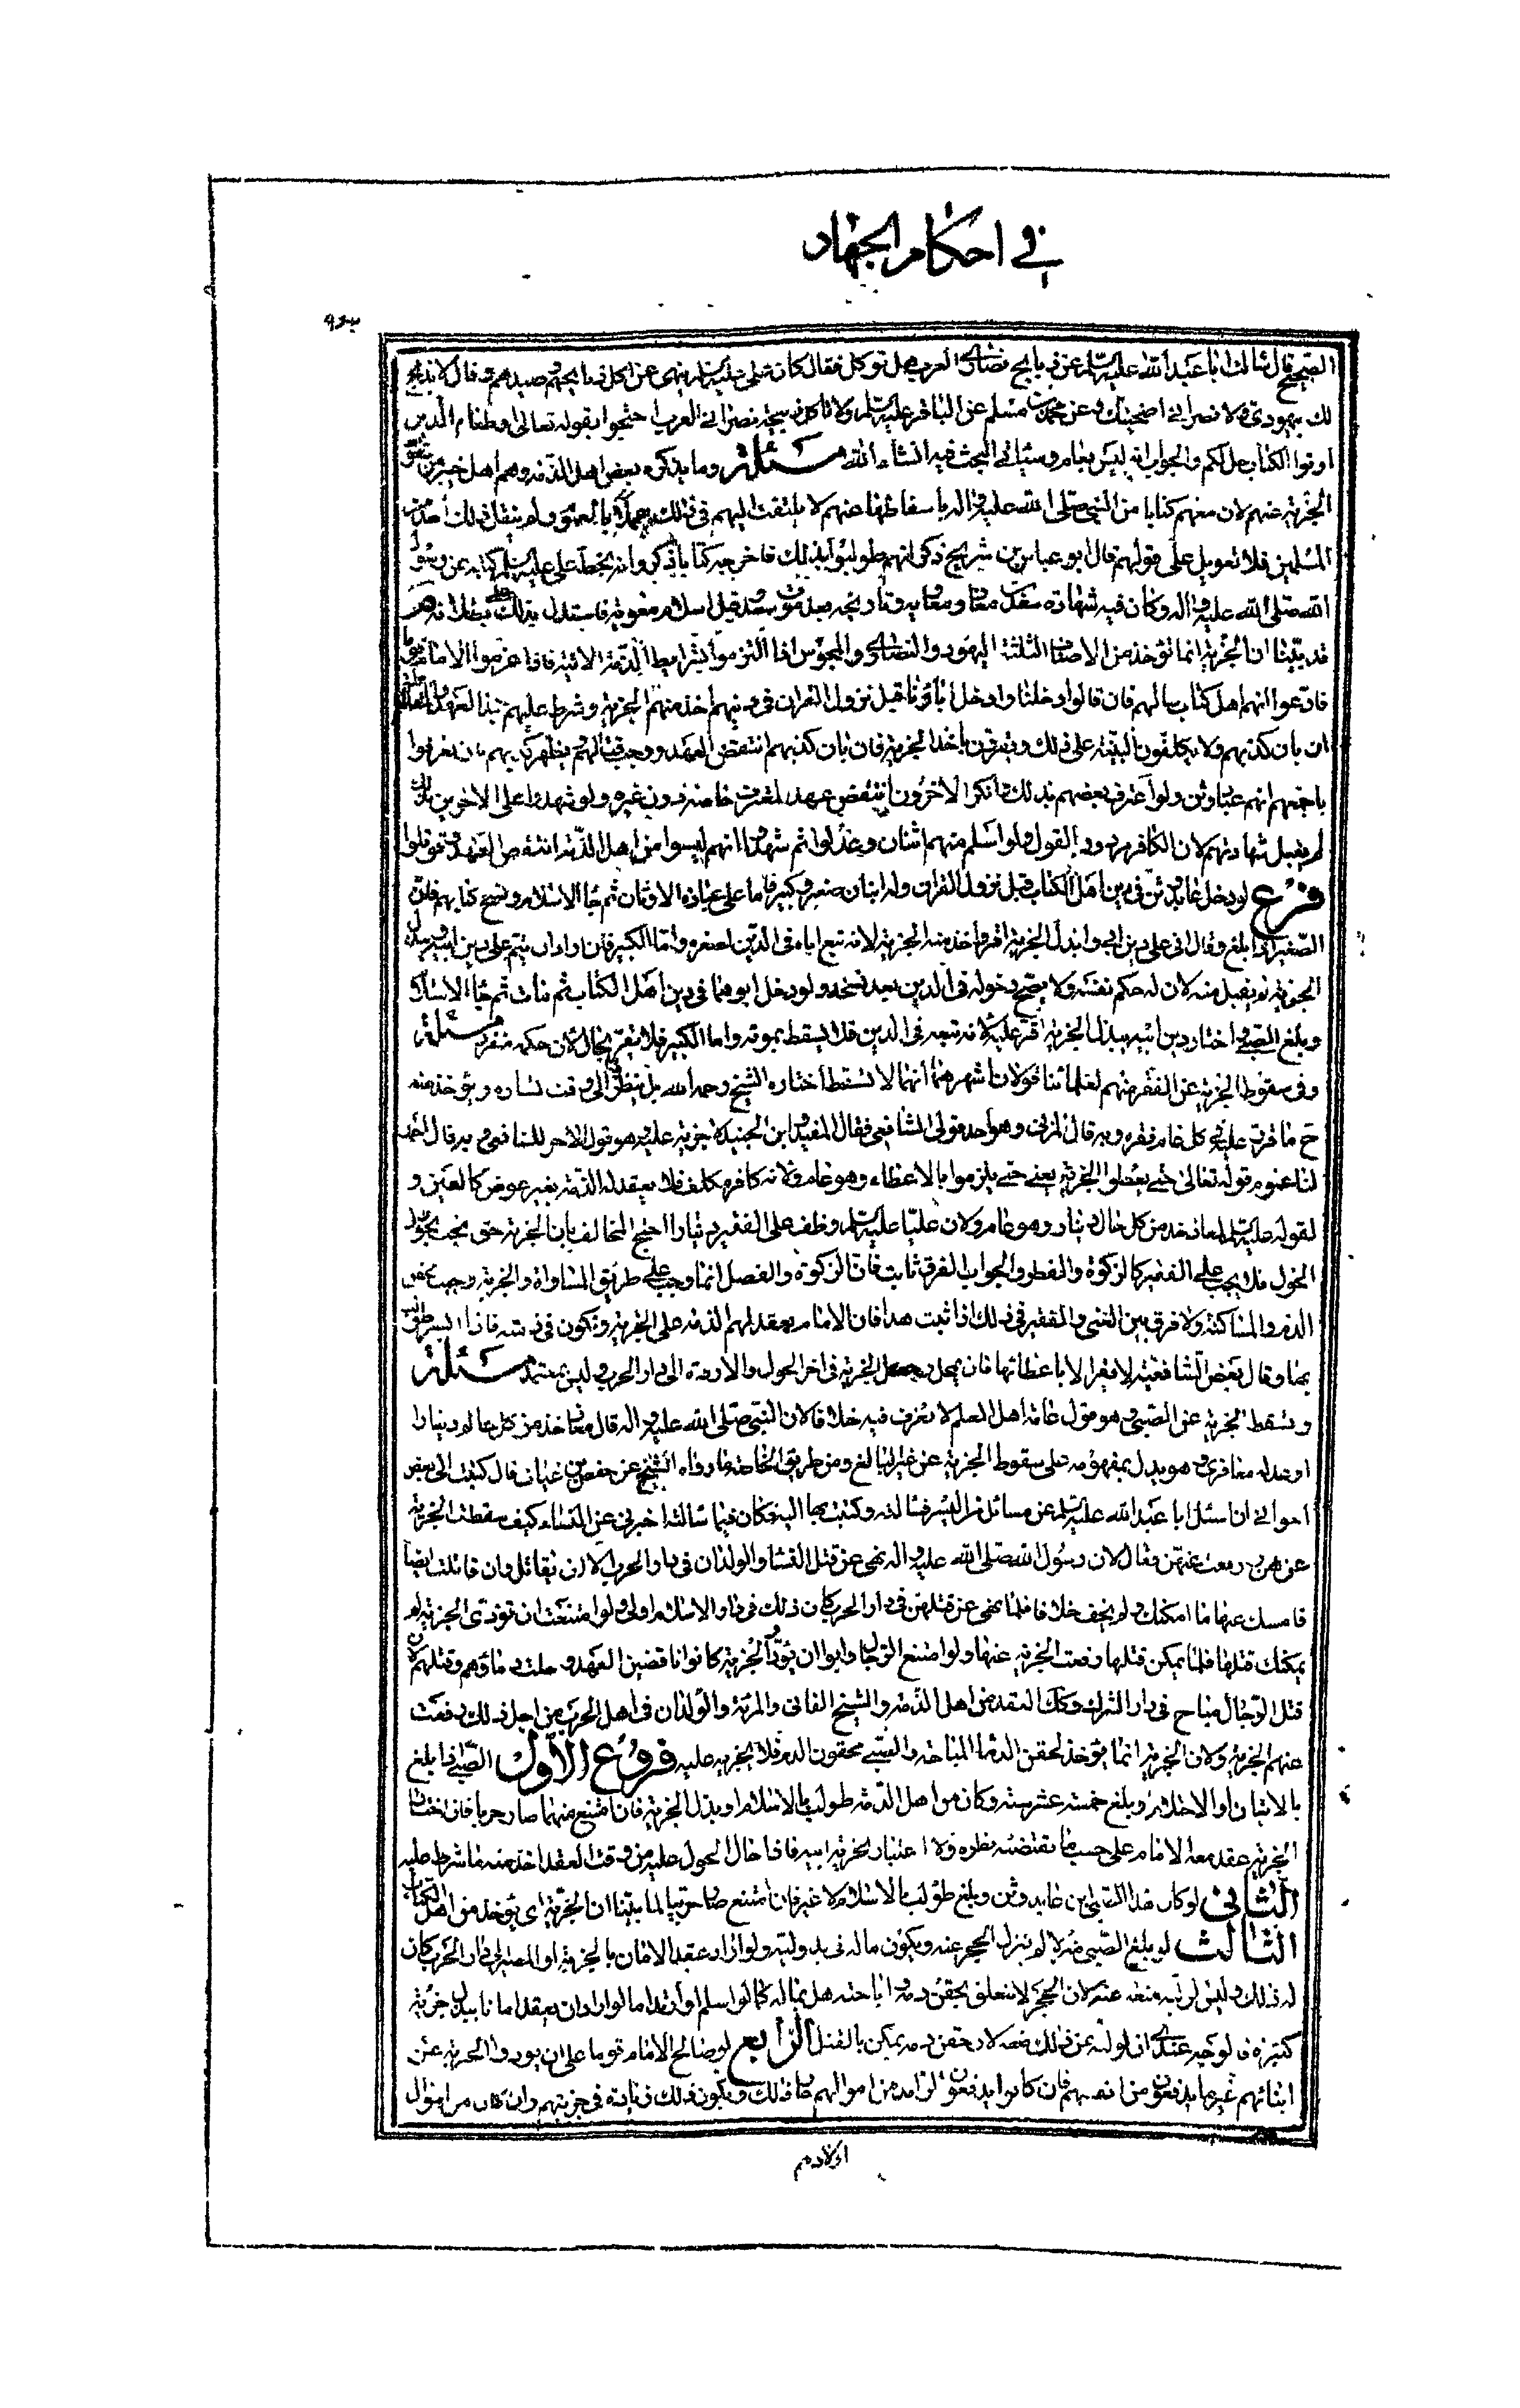 في احكام الجهاد
الصحيح قال سالت ابا عبد الله عليه السلام عن ذبايح نصارى العرب هل توكل فقال كان علي عليه السلام ينهى عن اكل ذبايحهم وصيدهم وقال لا يذبح
لك يهودي ولا نصراني اضحيتك وعن محمد بن مسلم عن الباقر عليه السلام ولا تاكل ذبيحة نصارى العرب احتجوا بقوله تعالى وطعام الذين
اوتوا الكتاب حل لكم والجواب انه ليس بعام وسياتي البحث فيه انشاء الله مسئلة وما يذكره بعض اهل الذمة وهم اهل خيبر من سقوط
الجزية عنهم لان معهم كتابا من النبي صلى الله عليه واله باسقاطها عنهم لا يلتفت اليهم في ذلك ولم ينقل ذلك احد من
المسلمين فلا تعويل على قولهم قال ابو عباس بن شريح ذكر انهم طولبوا بذلك فاخرجوا كتابا ذكروا انه بخط علي عليه السلام كتبه عن رسول
الله صلى الله عليه واله وكان فيه شهادة سعد بن معاذ ومعاوية وتاريخه بعد موت سعد وقبل اسلام معوية فاستدل بذلك على بطلانه
قد بيّنا ان الجزية انما توخذ من الاصناف الثلثة اليهود والنصارى والمجوس اذا التزموا بشرايط الذمة الاتية فاذا
فادعوا انهم اهل كتاب سالهم فان قالوا دخلنا او دخل اباؤنا قبل نزول القران في دينهم اخذ منهم الجزية وشرط عليهم نبذ العهد
ان بان كذبهم ولا يكلفون البينة على ذلك ويقرون باخذ الجزية فان بان كذبهم انتقض العهد ووجب قتالهم ويظهر كذبهم بان يعترفوا
باجمعهم انهم عباد وثن ولو اعترف بعضهم بذلك وانكر الاخرون انتقض عهد المعترف خاصة دون غيره ولو شهدوا على الاخرين بذلك
لم يقبل شهادتهم لان الكافر مردود القول ولو اسلم منهم اثنان وعدلوا ثم شهدوا انهم ليسوا من اهل الذمة انتقض العهد وقوتلوا
فرع لو دخل عابد وثن في دين اهل الكتاب قبل نزول القران وله ابنان صغير وكبير فاقاما على عبادة الاوثان ثم جاء الاسلام ونسخ كتابهم فان
الصغير اذا بلغ وقال اني على دين ابي وابذل الجزية اقر واخذ منه الجزية لانه تبع اباه في الدين لصغره واما الكبير فان اراد ان يقيم على دين ابيه ويبذل
الجزية لم يقبل منه لان له حكم نفسه ولا يصح دخوله في الدين بعد نسخه ولو دخل ابوهما في دين اهل الكتاب ثم مات ثم جاء الاسلام
وبلغ الصبي واختار دين ابيه ببذل الجزية اقر عليه لانه تبعه في الدين فلا يسقط بموته واما الكبير فلا يقر بحال لان حكمه منفرد مسئلة
وفي سقوط الجزية عن الفقير منهم لعلمائنا قولان اشهرهما انها لا تسقط اختاره الشيخ رحمه الله بل ينظر الى وقت يساره ويؤخذ منه
ح ما قرر عليه في كل عام فقره وبه قال المزني وهو احد قولي الشافعي فقال المفيد وابن الجنيد لا جزية عليه وهو قول الاخر للشافعي وبه قال احمد
لنا عموم قوله تعالى حتى يعطوا الجزية يعني حتى يلزموا بالاعطاء وهو عام ولانه كافر مكلف فلا يعقد له الذمة بغير عوض كالغني و
لقوله عليه السلام لمعاذ خذ من كل حالم دينار وهو عام ولان عليا عليه السلام وظف على الفقير دينارا احتج المخالف بان الجزية حق يجب بحؤول
الحول فلا يجب على الفقير كالزكوة والفطرة والجواب الفرق ثابت فان الزكوة والفضل انما وجب على طريق المساواة والجزية وجبت لحقن
الدم والمساكنة ولا فرق بين الغني والفقير في ذلك اذا ثبت هذا فان الامام يعقد لهم الذمة على الجزية وتكون في ذمته فاذا ايسر طولب
بها وقال بعض الشافعية لا يقر الا باعطائها فان الجزية في اخر الحول والا رده الى دار الحرب وليس بمعتمد مسئلة
وتسقط الجزية عن الصبي وهو قول عامة اهل العلم لا نعرف فيه خلافا لان النبي صلى الله عليه واله قال لمعاذ خذ من كل حالم دينارا
او عدله معافري وهو يدل بمفهومه على سقوط الجزية عن غير البالغ ومن طريق الخاصة ما رواه الشيخ عن حفص بن غياث قال كتب الى بعض
اخواني ان اسئل ابا عبد الله عليه السلام عن مسائل من السير فسالته وكتبت بها اليه فكان فيما سالته اخبرني عن النساء كيف سقطت الجزية
عنهن ورفعت عنهن فقال لان رسول الله صلى الله عليه واله نهى عن قتل النساء والولدان في دار الحرب الا ان يقاتلن وان قاتلت ايضا
فامسك عنها ما امكنك ولم يخف خللا فلما نهى عن قتلهن في دار الحرب كان ذلك في دار الاسلام اولى ولو امتنعت ان تؤدي الجزية لم
يمكنك قتلها فلما لم يمكن قتلها رفعت الجزية عنها ولو امتنع الرجال وابوا ان يؤدوا الجزية كانوا ناقضين للعهد وحلت دماؤهم وقتلهم لان
قتل الرجال مباح في دار الشرك وكذلك المقعد من اهل الذمة والشيخ الفاني والمرئة والولدان في اهل الحرب من اجل ذلك رفعت
عنهم الجزية ولان الجزية انما يؤخذ لحقن الدماء المباحة والصبي محقون الدم فلا جزية عليه فروع الاول الصبي اذا بلغ
بالانبات او الاحتلام او بلغ خمسة عشر سنة وكان من اهل الذمة طولب بالاسلام او بذل الجزية فان امتنع منهما صار حربا فان اختار
الجزية عقد معه الامام على حسب ما يقتضيه نظره ولا اعتبار بجزية ابيه فاذا حال الحول عليه من وقت العقد اخذ منه ما شرط عليه
الثاني لو كان هذا الصبي ابن عابد وثن وبلغ طولب بالاسلام لا غير فان امتنع صار حربيا لما بيّنا ان الجزية اي يؤخذ من اهل الكتاب
الثالث لو بلغ الصبي سفيها لم يزل الحجر عنه ويكون ماله في يد وليه ولو اراد عقد الامان بالجزية او المصير الى دار الحرب كان
له ذلك وليس لوليه منعه عنه لان الحجر لا يتعلق بحقن دمه واباحته بل بماله كما لو اسلم او ارتد اما لو اراد ان يعقد امانا ببذل جزية
كثيرة فالوجه عندي ان لوليه منعه لان حقن دمه يمكن بالقليل الرابع لو صالح الامام قوما على ان يؤدوا الجزية عن
ابنائهم غير ما يدفعون من انفسهم فان كانوا يدفعون الزائد من اموالهم جاز ذلك ويكون ذلك زيادة في جزيتهم وان كان من اموال
اولادهم